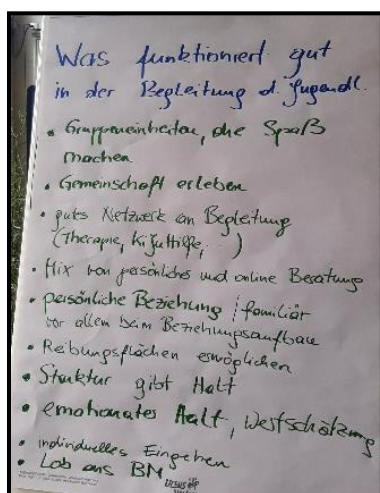 Was funktioniert gut
in der Begleitung d. Jugendl.
• Gruppeneinheiten, die Spaß
machen
• Gemeinschaft erleben
• gutes Netzwerk an Begleitung
(Therapie, KiJuHilfe, )
• Mix von persönliches und online Beratung
• persönliche Beziehung / familiär
vor allem beim Beziehungsaufbau
• Reibungsflächen ermöglichen
• Struktur gibt Halt
• emotionaler Halt, Wertschätzung
• individuelles Eingehen
• Lob ans BM